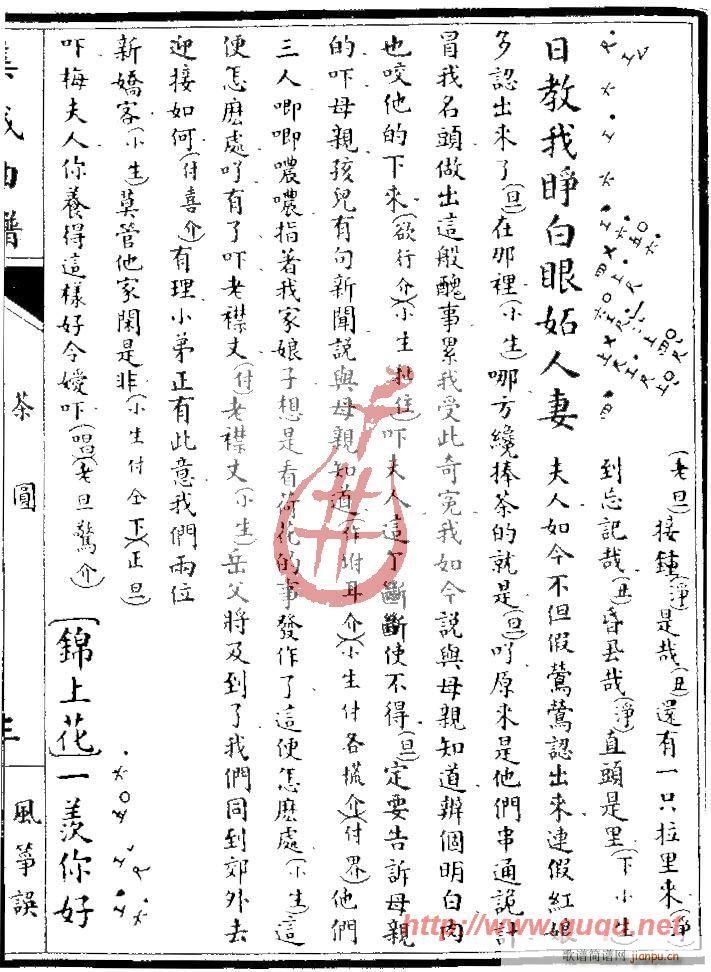 (老旦)接鍾(淨)是哉(丑)還有一只拉里來(淨)
到忘記哉(丑)昏哉(淨)直頭是里(下小生)
日教我睜白眼妬人妻 夫人如今不但假鶯鶯認出來連假紅娘
多認出來了(旦)在那裡(小生)哪方纔捧茶的就是(旦)吖原來是他們串通詭計
冒我名頭做出這般醜事累我受此奇冤我如今說與母親知道辨個明白肉
也咬他的下來(欲行介)(小生 住)吓夫人這個斷斷使不得(旦)定要告訴母親
的吓母親孩兒有句新聞說與母親知道(作附耳介)(小生付各慌介)(付界)他們
三人唧唧噥噥指著我家娘子想是看荷花的事發作了這便怎麽處(小生)這
便怎麽處吖有了吓老襟丈(付)老襟丈(小生)岳父將及到了我們同到郊外去
迎接如何(付喜介)有理小弟正有此意我們兩位
新嬌客(小生)莫管他家閑是非(小生付仝下)(正旦)
吓梅夫人你養得這樣好令嬡吓(唱)(老旦驚介)〔錦上花〕一羨你好
集成曲譜
茶圓
風箏誤
http://www.ququ.net
歌谱简谱网
jianpu.cn